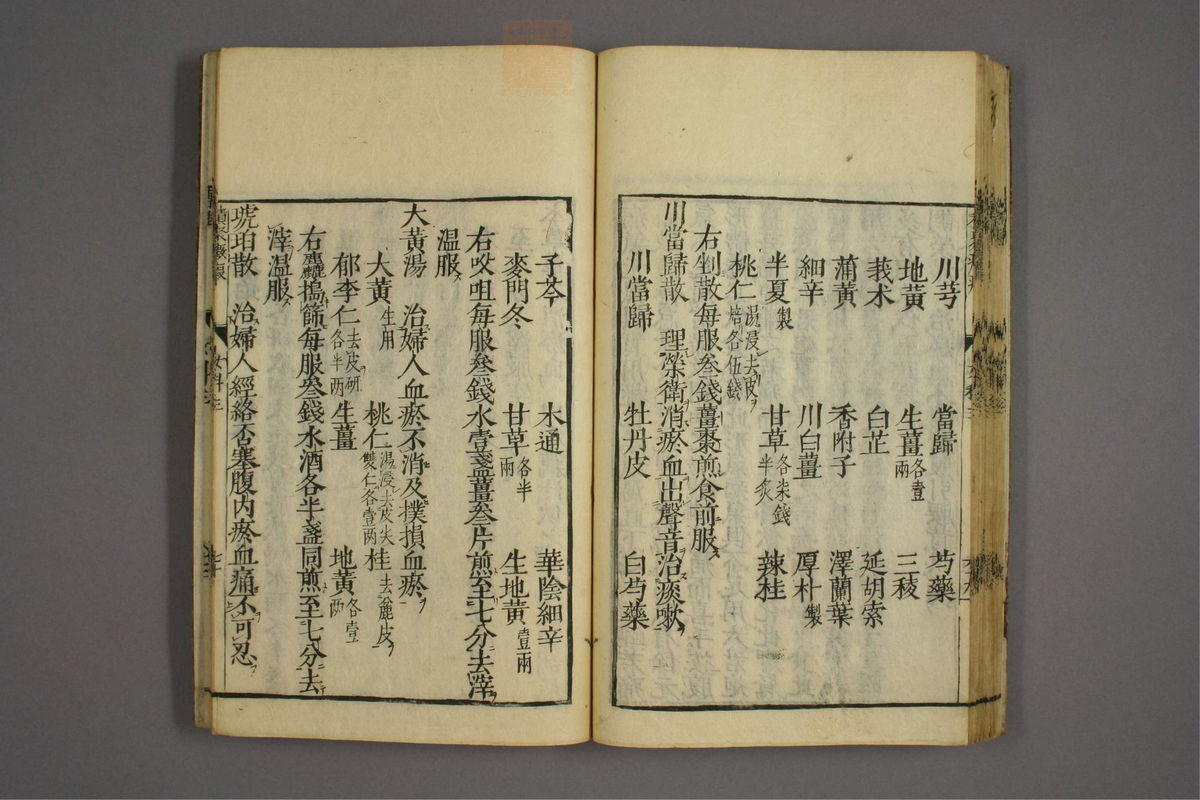 川芎 當歸 芍藥
地黃 生薑各壹兩 三稜
莪朮 白芷 延胡索
蒲黃 香附子 澤蘭葉
細辛 川白薑 厚朴製
半夏製 甘草各柒錢半炙 辣桂
桃仁湯浸去皮焙各伍錢
右剉散每服叁錢薑棗煎食前服
川當歸散 理榮衛消瘀血出聲音治痰嗽
川當歸 牡丹皮 白芍藥
子芩 木通 華陰細辛
麥門冬 甘草各半兩 生地黃壹兩
右㕮咀每服叁錢水壹盞薑叁片煎至七分去滓
溫服
大黃湯 治婦人血瘀不消及撲損血瘀
大黃生用 桃仁湯浸去皮尖雙仁各壹兩 桂去麄皮
郁李仁去皮研各半兩 生薑 地黃各壹兩
右麤搗篩每服叁錢水酒各半盞同煎至七分去
滓溫服
琥珀散 治婦人經絡否塞腹內瘀血痛不可忍